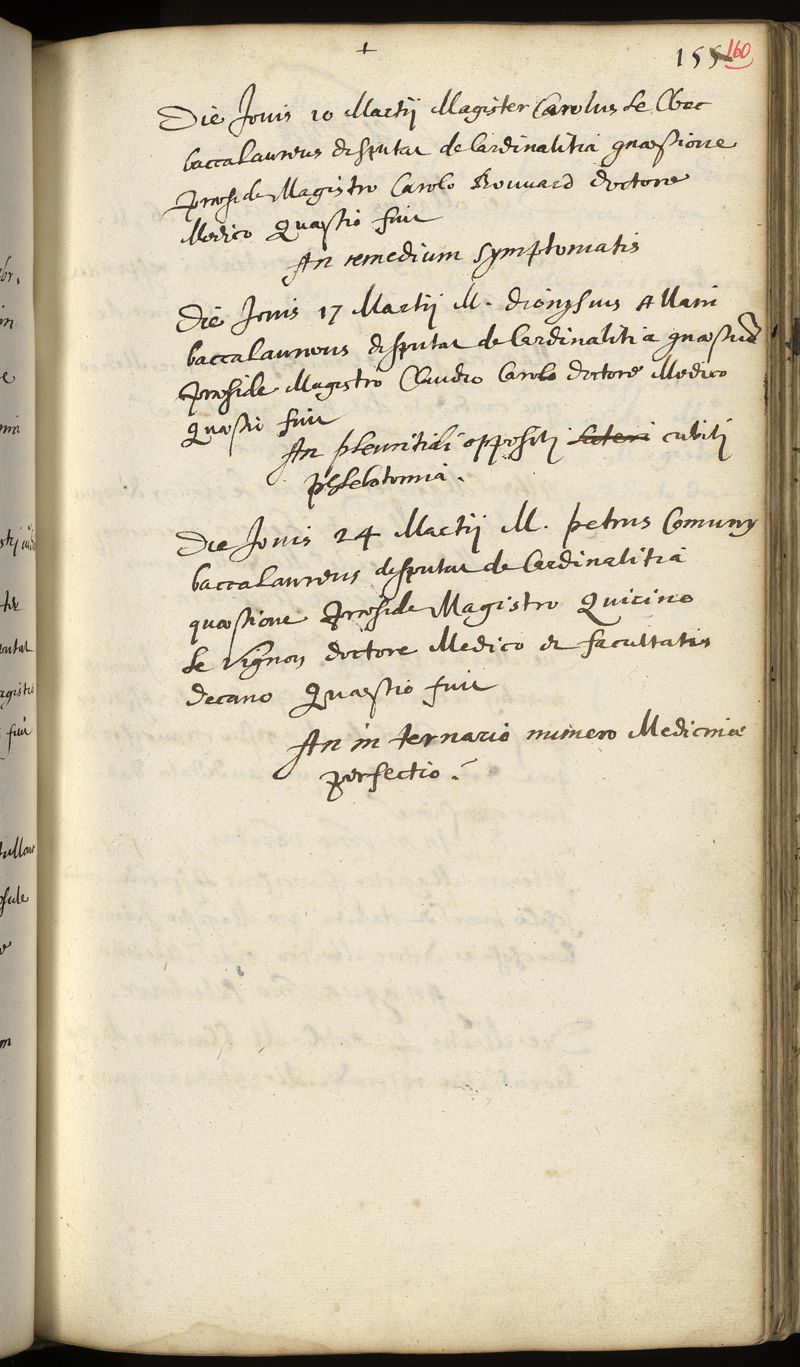 +
155 160
Die Jovis 10 Martij Magister Carolus le Clerc
baccalaureus disputat de Cardinalitia quæstione
præside Magistro Carolo Bouvard doctore
Medico Quæstio fuit
An remedium symptomatis
Die Jovis 17 Martij M. dionysius Allani
baccalaureus disputat de Cardinalitia quæstione
præside Magistro Claudio Carolo doctore Medico
Quæstio fuit
An pleuritidi oppositi lateri cubiti
phlebotomia.
Die Jovis 24 Martij M. petrus Comuny
baccalaureus disputat de Cardinalitia
quæstione præside Magistro Quirino
le Vignon doctore Medico et facultatis
decano Quæstio fuit
An in ternario numero Medicinæ
perfectio.